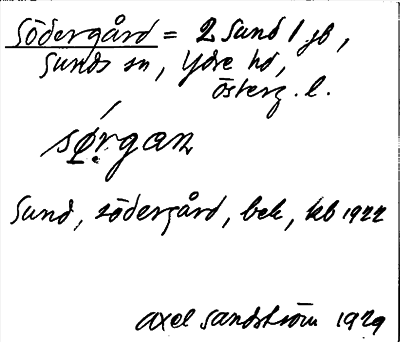 Södergård = 2 Sund 1 jb,
Sunds sn, Ydre hd,
Österg. l.
sǿ̣rgan
Sund, södergård, bek, kb 1922
Axel Sandström 1929